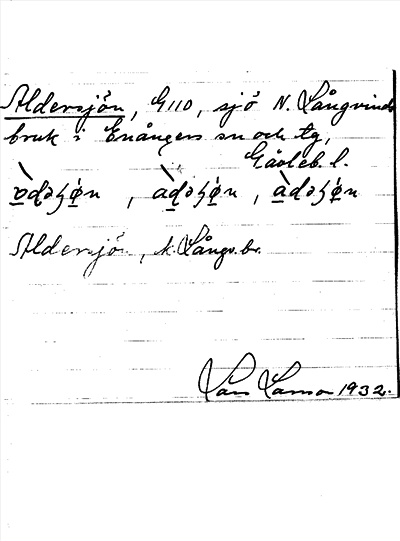 Aldersjön, G110, sjö N. Långvinds
bruk i Enångers sn och tg,
Gävleb. l.
Aldersjö, N. Långv. br.
Lars Larsson 1932.